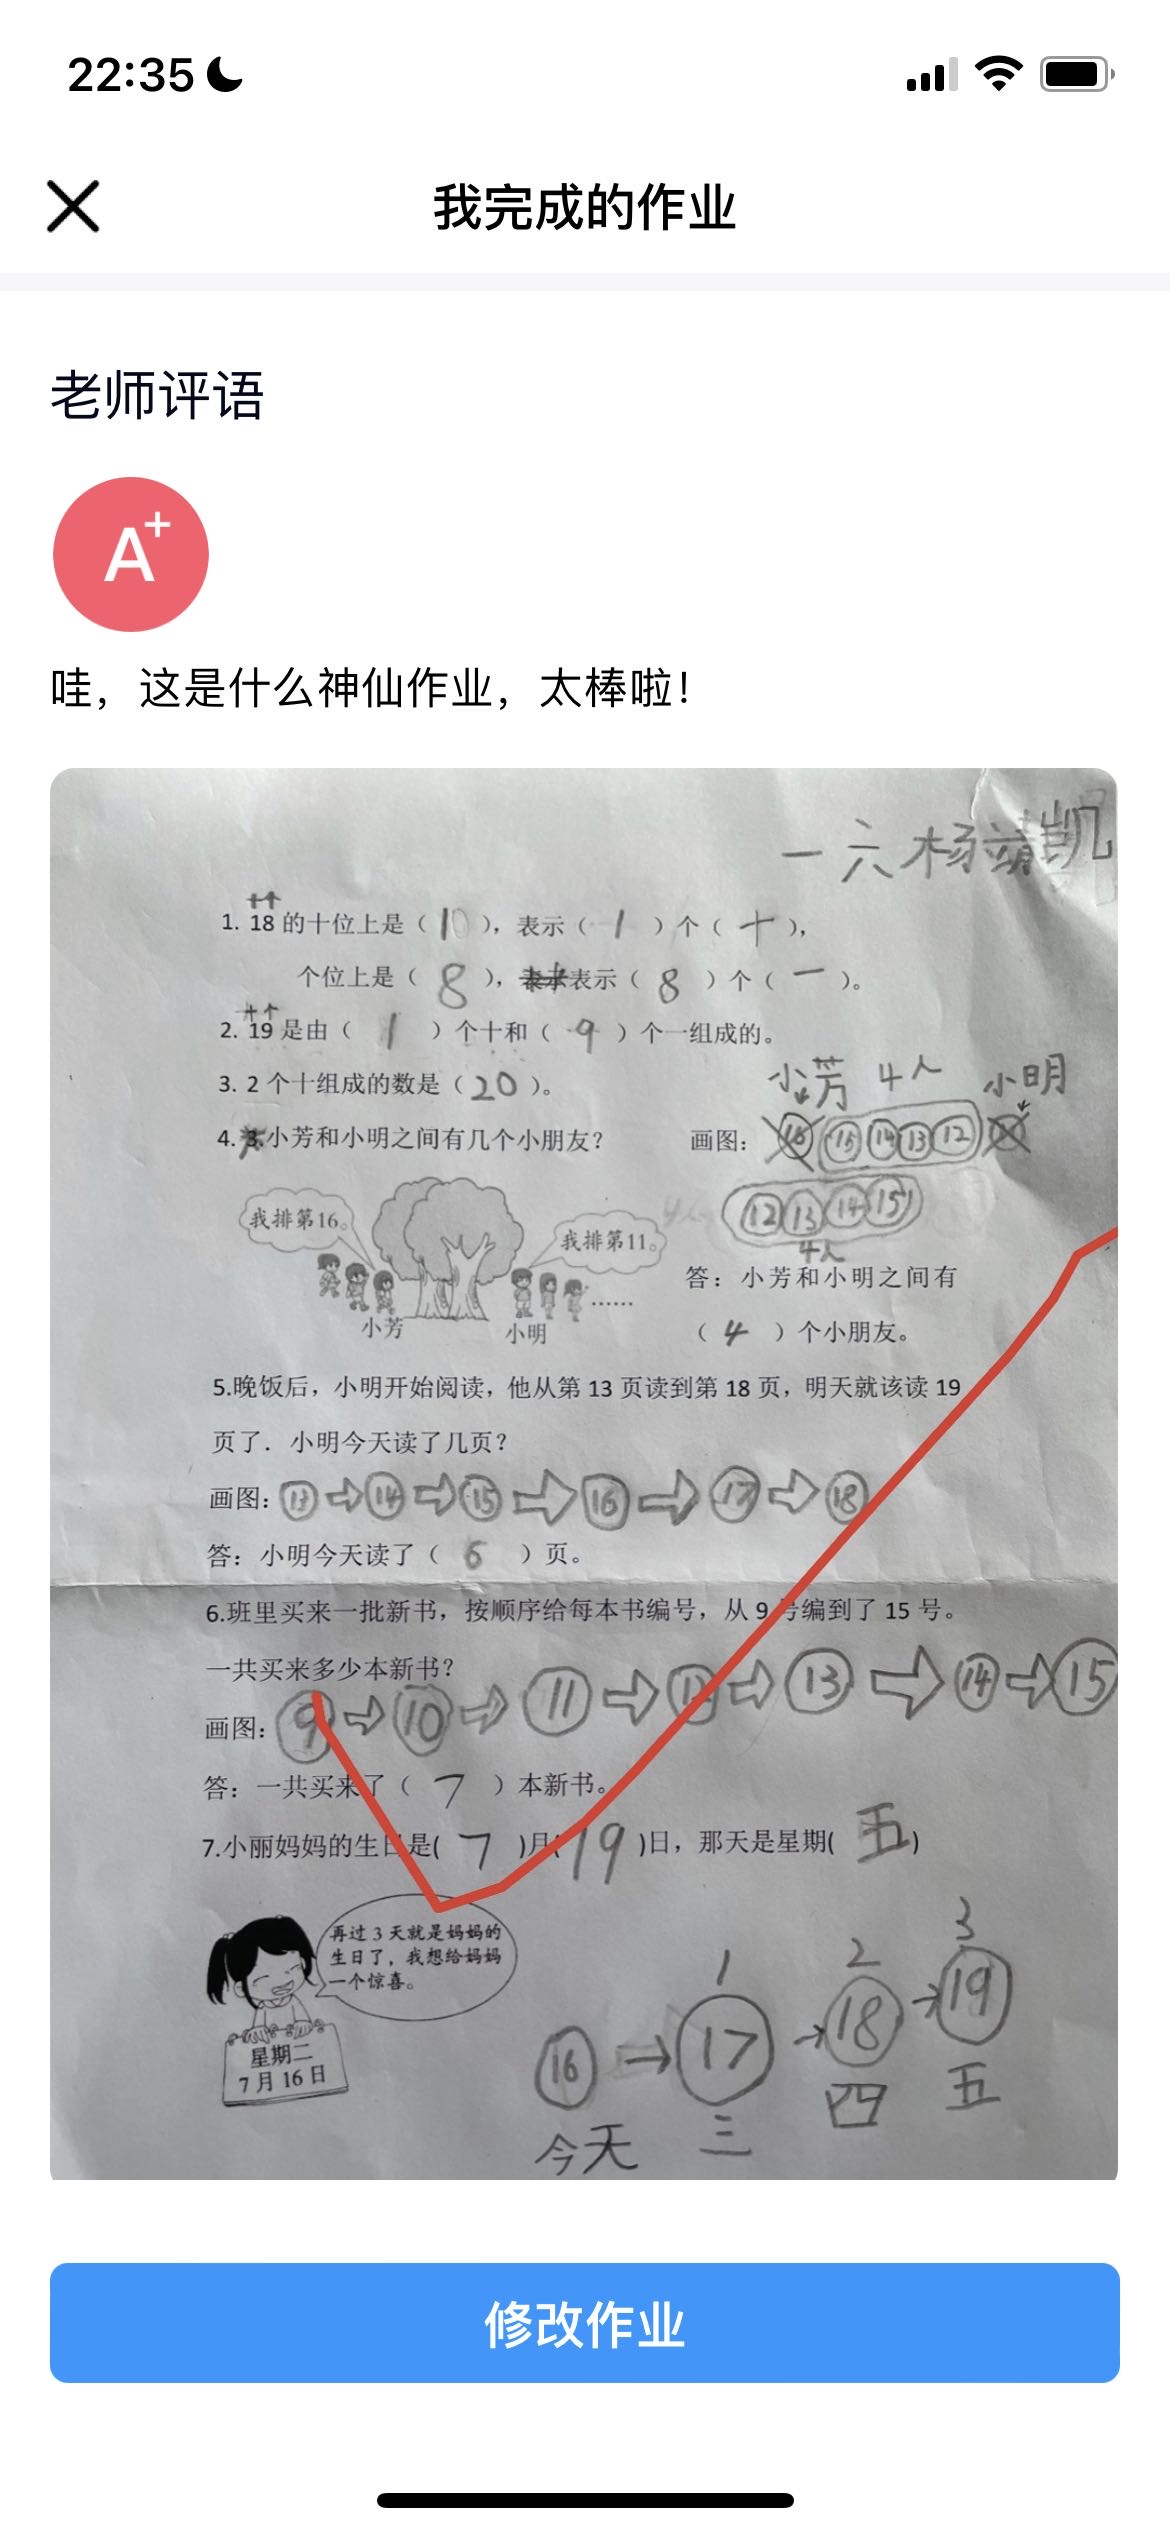 22:35
我完成的作业
老师评语
A+
哇，这是什么神仙作业，太棒啦！
一六杨靖凯
十个
1. 18 的十位上是（ 10 ），表示（ 1 ）个（ 十 ），
个位上是（ 8 ），表示表示（ 8 ）个（ 一 ）。
十个
2. 19 是由（ 1 ）个十和（ 9 ）个一组成的。
3. 2 个十组成的数是（ 20 ）。
小芳 4人 小明
4. 3.小芳和小明之间有几个小朋友？ 画图： 16 15 14 13 12
我排第16。 我排第11。 4人 12 13 14 15
4人
答：小芳和小明之间有
小芳 小明 ……
（ 4 ）个小朋友。
5.晚饭后，小明开始阅读，他从第 13 页读到第 18 页，明天就该读 19
页了．小明今天读了几页？
画图： 13 14 15 16 17 18
答：小明今天读了（ 6 ）页。
6.班里买来一批新书，按顺序给每本书编号，从 9 号编到了 15 号。
一共买来多少本新书？
画图： 9 10 11 12 13 14 15
答：一共买来了（ 7 ）本新书。
7.小丽妈妈的生日是( 7 )月( 19 )日，那天是星期( 五 )
再过 3 天就是妈妈的
生日了，我想给妈妈
一个惊喜。
星期二
7 月 16 日
1 2 3
16 → 17 → 18 → 19
今天 三 四 五
修改作业